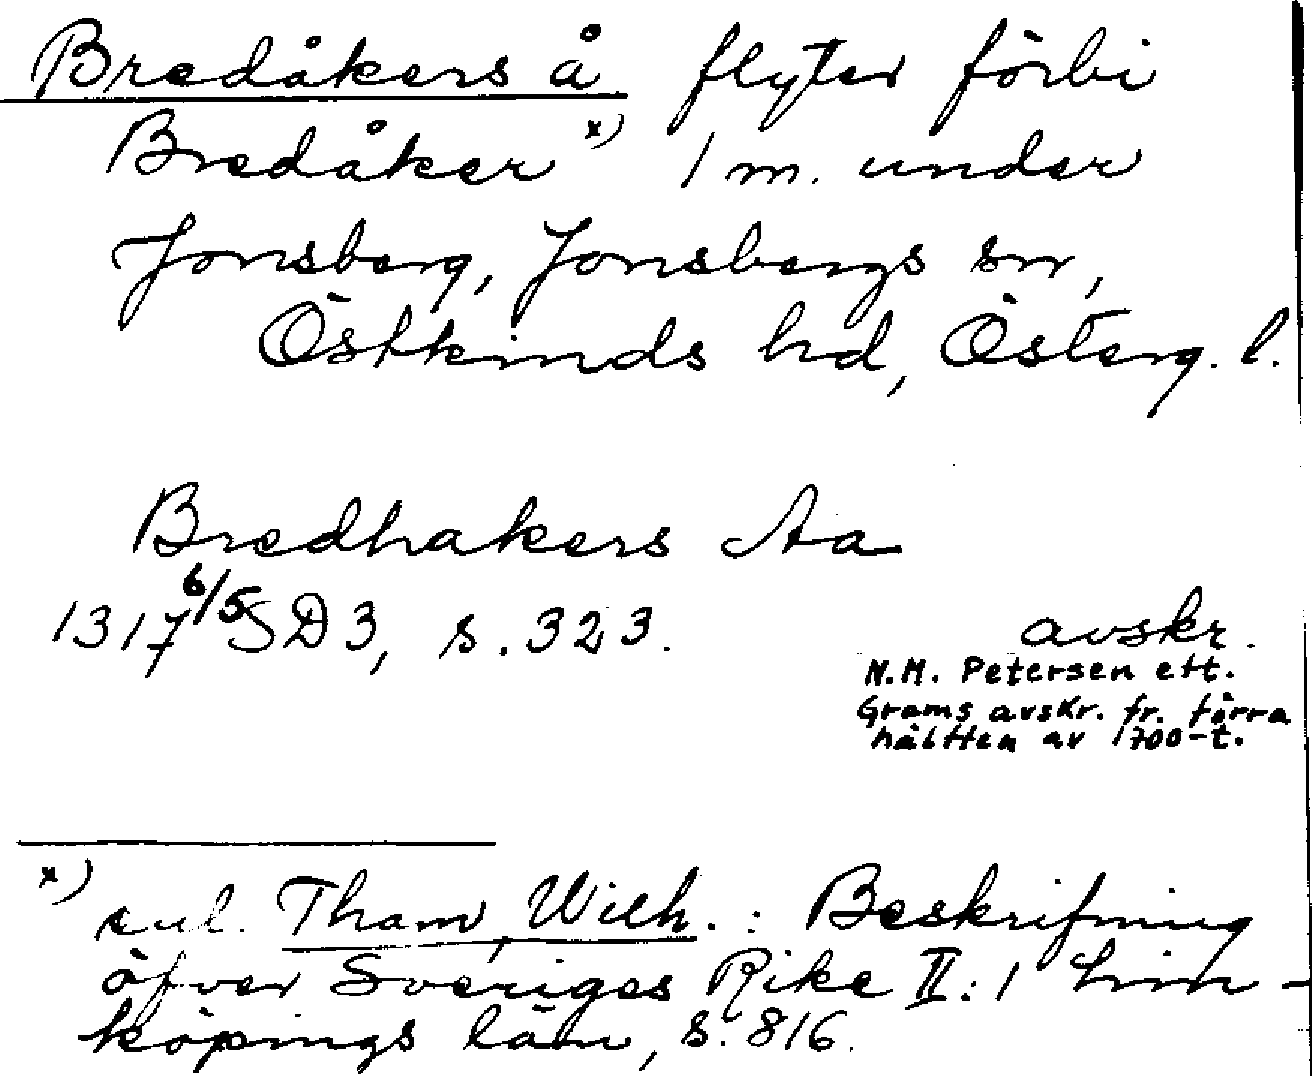 Bredåkers å flyter förbi
Bredåker x) 1 m. under
Jonsberg, Jonsbergs sn,
Östkinds hd, Österg. l.
Bredhakers Aa
1317 6/5 SD 3, s. 323.
avskr.
N.M. Petersen eft.
Grams avskr. fr. förra
hälften av 1700-t.
x) enl. Tham, Wilh.: Beskrifning
öfver Sveriges Rike II:1 Lin-
köpings län, s. 816.